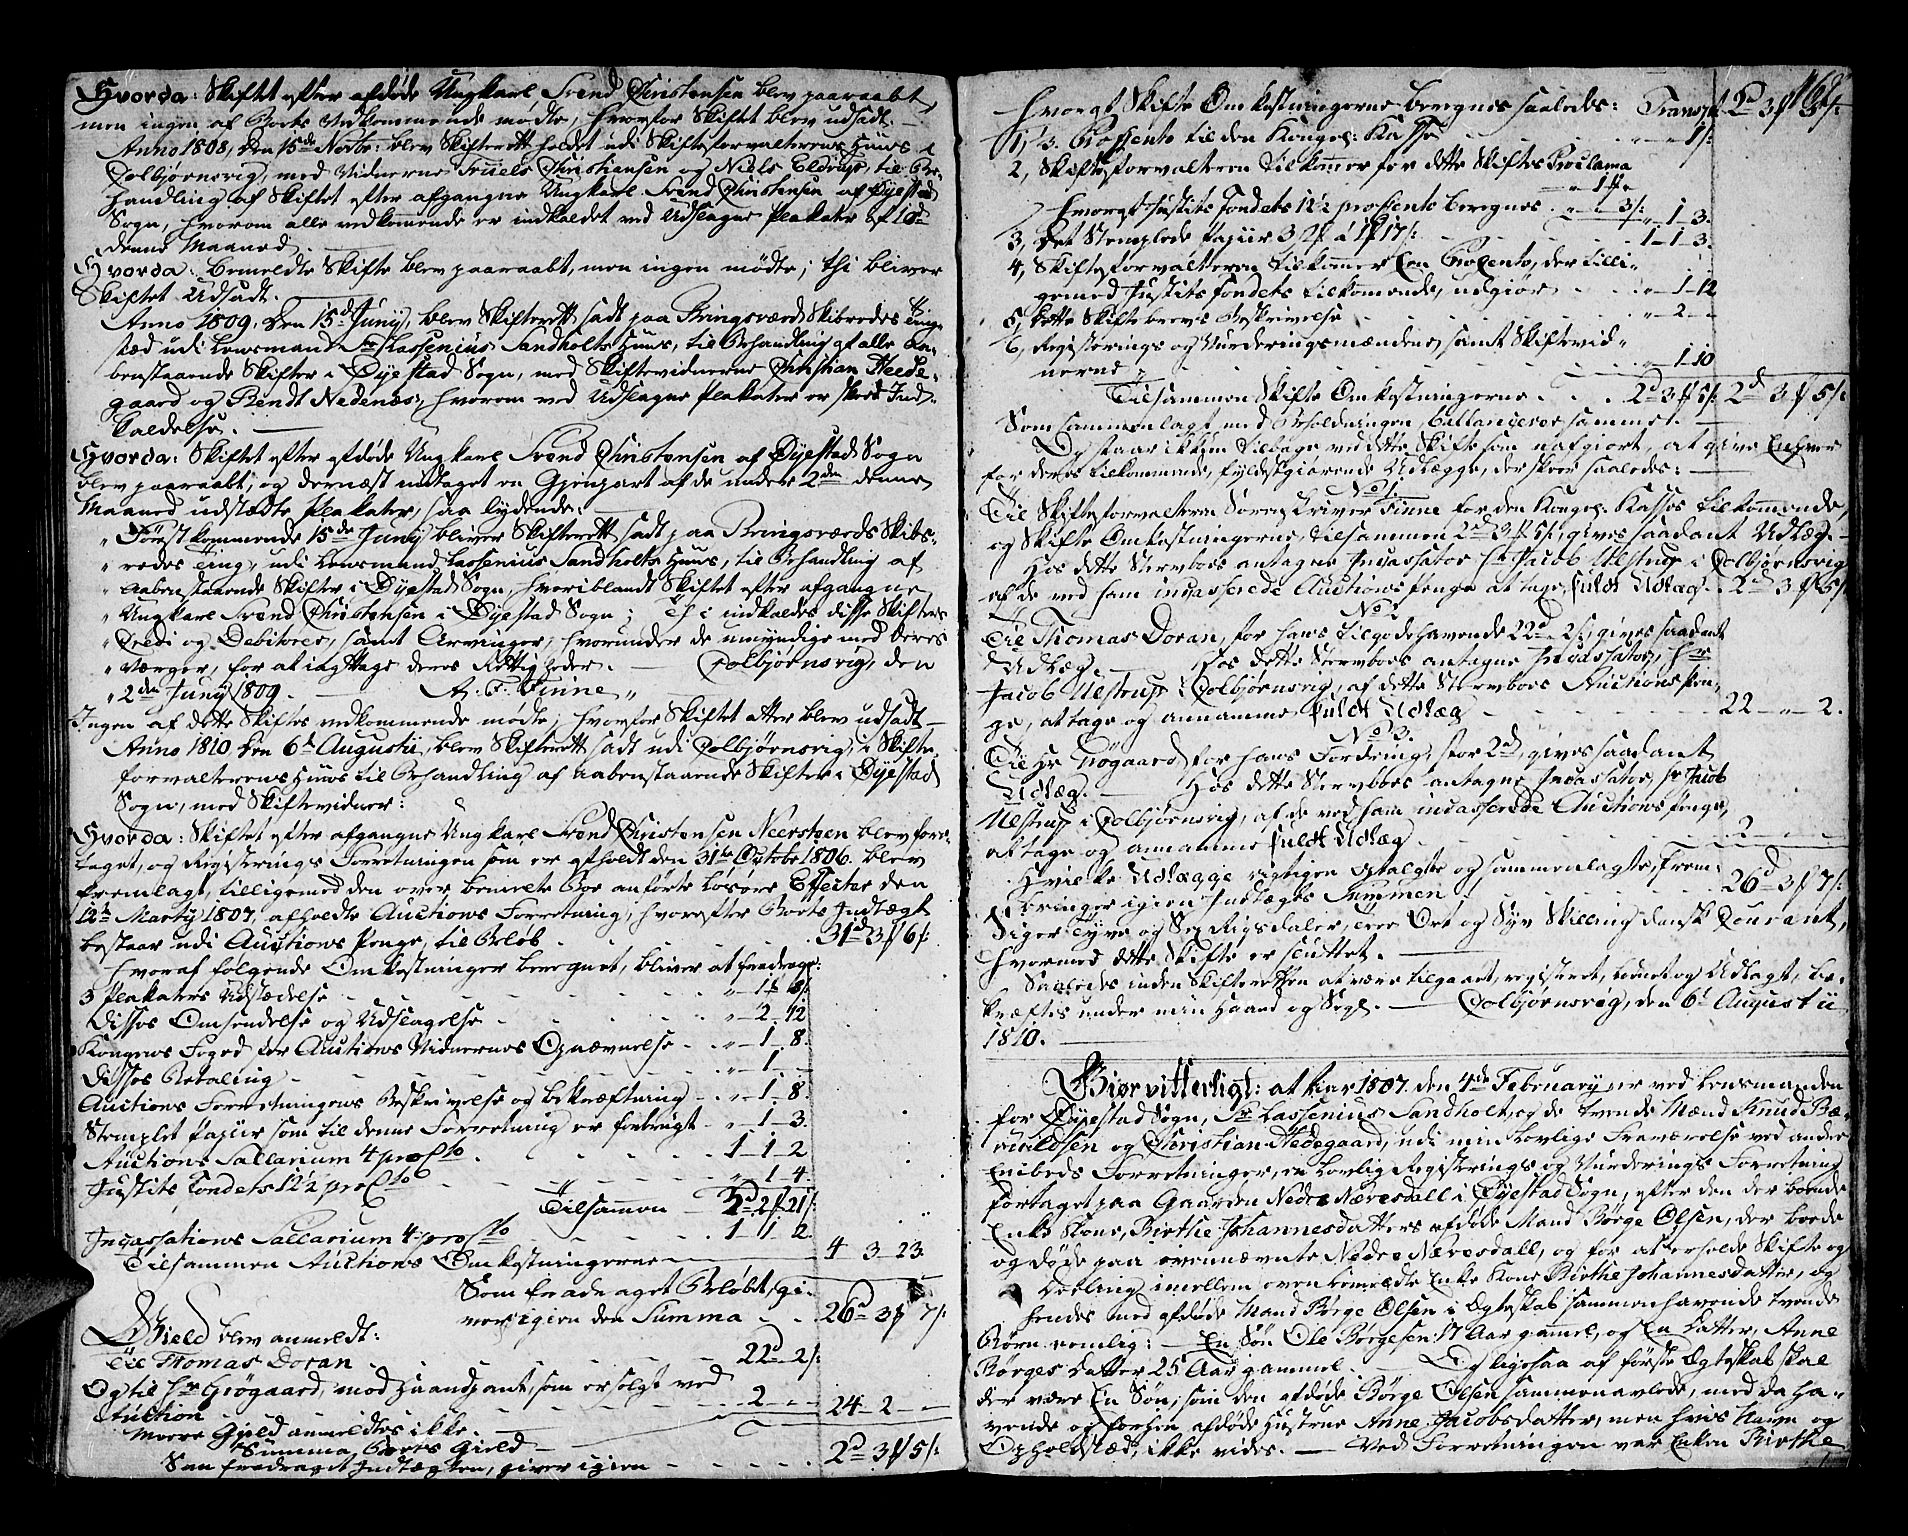 Hvorda: Skiftet efter afdøde Ungkarl Svend Christensen blev paaraabt,
men ingen af Boets Vedkommende mødte, hvorfor Skiftet blev udsadt. —
Anno 1808, den 15de Novbr: blev Skifterett holdet udi Skifteforvalterens Huus i
Colbjørnsvig, med Vidnerne Truels Christiensen og Niels Eldrup, til Be-
handling af Skiftet efter afgangne Ungkarl Svend Christensen af Øyestad
Sogn, hvorom alle vedkommende er indkaldet ved Udslagne Plakater af 10de
denne Maaned.
Hvorda: bemeldte Skifte blev paaraabt, men ingen mødte; thi bliver
Skiftet Udsadt.
Anno 1809. den 15de Juny, blev Skifterett sadt paa Bringsværd Skibredes Ting-
sted udi Lensmand Sr Lassenius Sandholts Huus, til Behandling af alle aa-
benstaaende Skifter i Øyestad Sogn, med Skiftevidnerne Christian Heede-
gaard og Bendt Nedenæs, hvorom ved Udslagne Plakater er skeet Ind-
kaldelse. —
Hvorda: Skiftet efter afdøde Ungkarl Svend Christensen af Øyestad Sogn
blev paaraabt, og dernæst indtaget en Gjenpart af de under 2den denne
Maaned udstædte Plakater, saa lydende:
„ Førstkommende 15de Juny bliver Skifterett sadt paa Bringsværds Skibs-
„ redes Ting, udi Lensmand Lassenius Sandholts Huus, til Behandling af
„ aabenstaaende Skifter i Øyestad Sogn, hvoriblandt Skiftet efter afgangne
„ Ungkarl Svend Christensen i Øyestad Sogn; Thi indkaldes disse Skifters
„ Credi og Debitorer, samt Arvinger, hvorunder de umyndige med deres
„ Værger, for at iagttage deres Rettigheder. — Colbjørnsvig, den
„ 2den Juny 1809. — A. F. Finne „
Ingen af dette Skiftes vedkommende mødte; hvorfor Skiftet atter blev udsadt —
Anno 1810 den 6te Augustii, blev Skifterett sadt udi Colbjørnsvig, i Skifte-
forvalterens Huus til Behandling af aabenstaaende Skifter i Øyestad
Sogn, med Skiftevidner:
Hvorda: Skiftet efter afgangne Ungkarl Svend Christensen Neersteen blev fore-
taget, og Registerings Forretningen som er afholdt den 31te Octobr 1806. blev
fremlagt, tilligemed den over benevnte Boe anførte Løsøre Effecter den
12te Marty 1807, afholdte Auctions Forretning, hvorefter Boets Indtægt
bestaar udi Auctions Penge, til Beløb . . . 31d 3f 6s:
Hvoraf følgende Omkostninger beregnet, bliver at fradrage:
3 Plakaters Udstædelse . . . „ — 1f 8s:
Disses Omsendelse og Udslagelse . . . „ — 2 — 12
Kongens Foged for Auctions Vidnernes Opnævnelse . . „ — 1 — 8.
Disses Betaling . . . „ — 1 —
Auctions Forretningens Beskrivelse og bekræftning . . „ — 1 — 8
Stemplet Papiir som til denne Forretning er forbrugt . „ — 1 — 3.
Auctions Sallarium 4 proCto . . . 1 — 1 — 2
Justits Fondets 12½ proCto . . . „ 1 — 4.
Tilsamen — 3d 2f 21s:
Incassations Sallarium 4 proCto . . . 1 — 1 — 2.
Tilsammen Auctions Omkostningerne — 4 — 3 — 23.
Som fradraget Beløbet, gi-
ver igien den Summa . . 26d 3f 7s:
Gield blev anmeldt:
Til Thomas Doran . . . 22d — 2s:
Og til Hr Grøgaard, mod Haandpant, som er solgt ved
Auction . . . 2 — „ — 24 — 2 —
Meere Gield anmeldtes ikke.
Summa Boets Gield —
Som fradraget Indtægten, giver igien — . . . 2d 3f 5s:
168.
Hvorgt Skifte Omkostningerne beregnes saaledes: Transpt 2d 3f 5s:
1, ½ Procento til den Kongel: Kasse . . . „ — „ — 11s:
2, Skifteforvalteren tilkomer for dette Skiftes Proclama
„ 1f „
Hvorgt Justits Fondets 12½ procento beregnes . „ — „ 3s: „ — 1 — 3.
3, Det Stemplede Papiir 3 Af à 1f 17s: . . . 1 — 1 — 3.
4, Skifteforvalteren tilkomer een Procento, der tilli-
gemed Justits Fondets tilkomende, udgiør . . . „ — 1 — 12
5, Dette Skiftebrevs Beskrivelse . . . „ — 2 — „
6, Registerings og Vurderingsmændene, samt Skiftevid-
nerne . . . „ — 1 — 10
Tilsammen Skifte Omkostningerne . . . 2d 3f 5s: 2d 3f 5s:
Som sammenlagt, med Beholdningen, ballancerer sammet. —
Og staar ikkun tilbage ved dette Skifte som uafgiort, at give Enhver
for deres tilkommende, fyldestgiørende Udlægge, der skeer saaledes: —
No 1.
Til Skifteforvalteren Sorenskriver Finne for den Kongel: Kasses tilkomende,
og Skifte Omkostningerne, tilsammen 2d 3f 5s:, gives saadant Udlæg. —
Hos dette Sterrboes antagne Incassator Hr Jacob Ulstrup i Colbjørnsvig
af de ved ham incasserede Auctions Penge at tage, fuldt Udlæg . 2d 3f 5s:
No 2.
Til Thomas Doran, for hans tilgodehavende 22d 2s:, gives saadant
Udlæg. — Hos dette Sterrboes antagne Incassator, Hr
Jacob Ulstrup i Colbjørnsvig, af dette Sterrboes Auctions Pen-
ge, at tage og annamme fuldt Udlæg . . . 22 — „ — 2.
No 3.
Til Hr Grøgaard, for hans Fordring, stor 2d, gives saadant
Udlæg. — Hos dette Sterrboes antagne Incassator, Hr Jacob
Ulstrup i Colbjørnsvig, af de ved ham incasserede Auctions Penge,
at tage og annamme fuldt Udlæg . . . 2 —
Hvilke Udlægge rigtigen optalgte og sammenlagte, frem-
bringer igien Indtægts Summen . . . 26d 3f 7s:
Siger Tyve og Sex Rigsdaler, tree Ort og Syv Skilling dansk Courant,
hvormed dette Skifte er sluttet. —
Saaledes inden Skifteretten at være tilgaaet, registeret, loddet og Udlagt, be-
kræftes under min Haand og Segl. — Colbjørnsvig, den 6te Augustii
1810. —
Giør vitterligt: at Aar 1807. den 4de February er ved Lensmanden
for Øyestad Sogn, Sr Lassenius Sandholt, og de tvende Mænd Knud Bæ-
ruldsen og Christian Hedegaard, udi min Lovlige Fraværelse ved andre
Embeds Forretninger, en Lovlig Registerings og Vurderings Forretning
foretaget paa Gaarden Nedre Næresdall i Øyestad Sogn, efter den der boende
Enke Kone, Birthe Johannesdatters afdøde Mand Børge Olsen, der boede
og døde paa ovennævnte Nedre Næresdall, og for at erholde Skifte og
Deeling imellem ovenbemeldte Enke Kone Birthe Johannesdatter, og
hendes med afdøde Mand Børge Olsen i Ægteskab sammenhavende tvende
Børn nemlig: — En Søn Ole Børgesen 17 Aar gammel, og En Datter, Anne
Børges Datter 25 Aar gammel. — Og ligesaa af første Ægteskab skal
der være En Søn, som den afdøde Børge Olsen sammenavlede, med da ha-
vende og forhen afdøde Hustrue Anne Jacobsdatter, men hvis Navn og
Opholdstæd, ikke vides. — Ved Forretningen var Enken Birthe